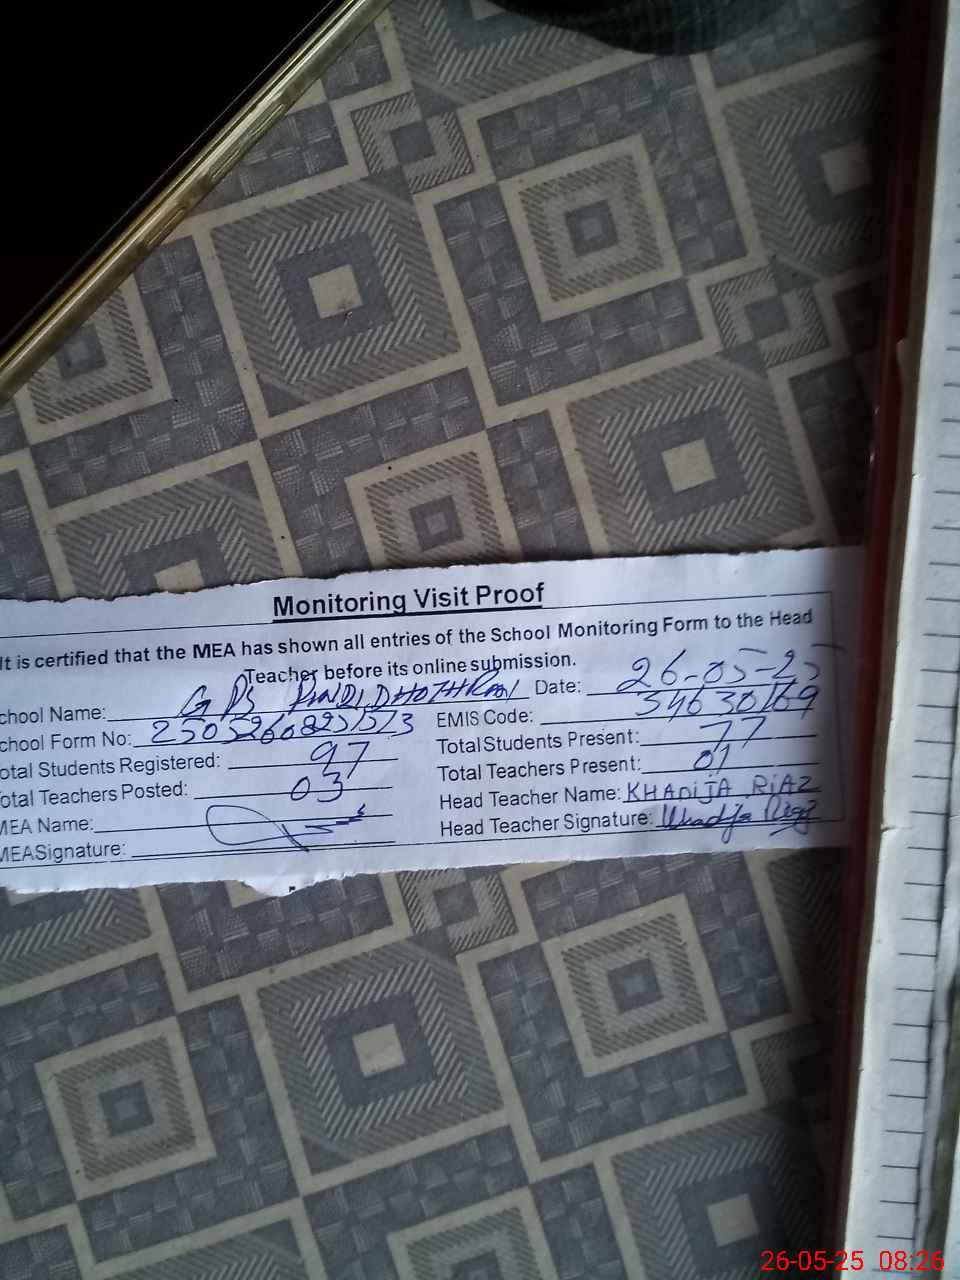 Monitoring Visit Proof
It is certified that the MEA has shown all entries of the School Monitoring Form to the Head
Teacher before its online submission.
chool Name: GPS Date: 26-05-25
chool Form No: EMIS Code: 34630169
otal Students Registered: 97 Total Students Present: 77
otal Teachers Posted: 03 Total Teachers Present: 01
MEA Name: Head Teacher Name: KHADIJA RIAZ
MEA Signature: Head Teacher Signature: Khadija Riaz
26-05-25 08:26